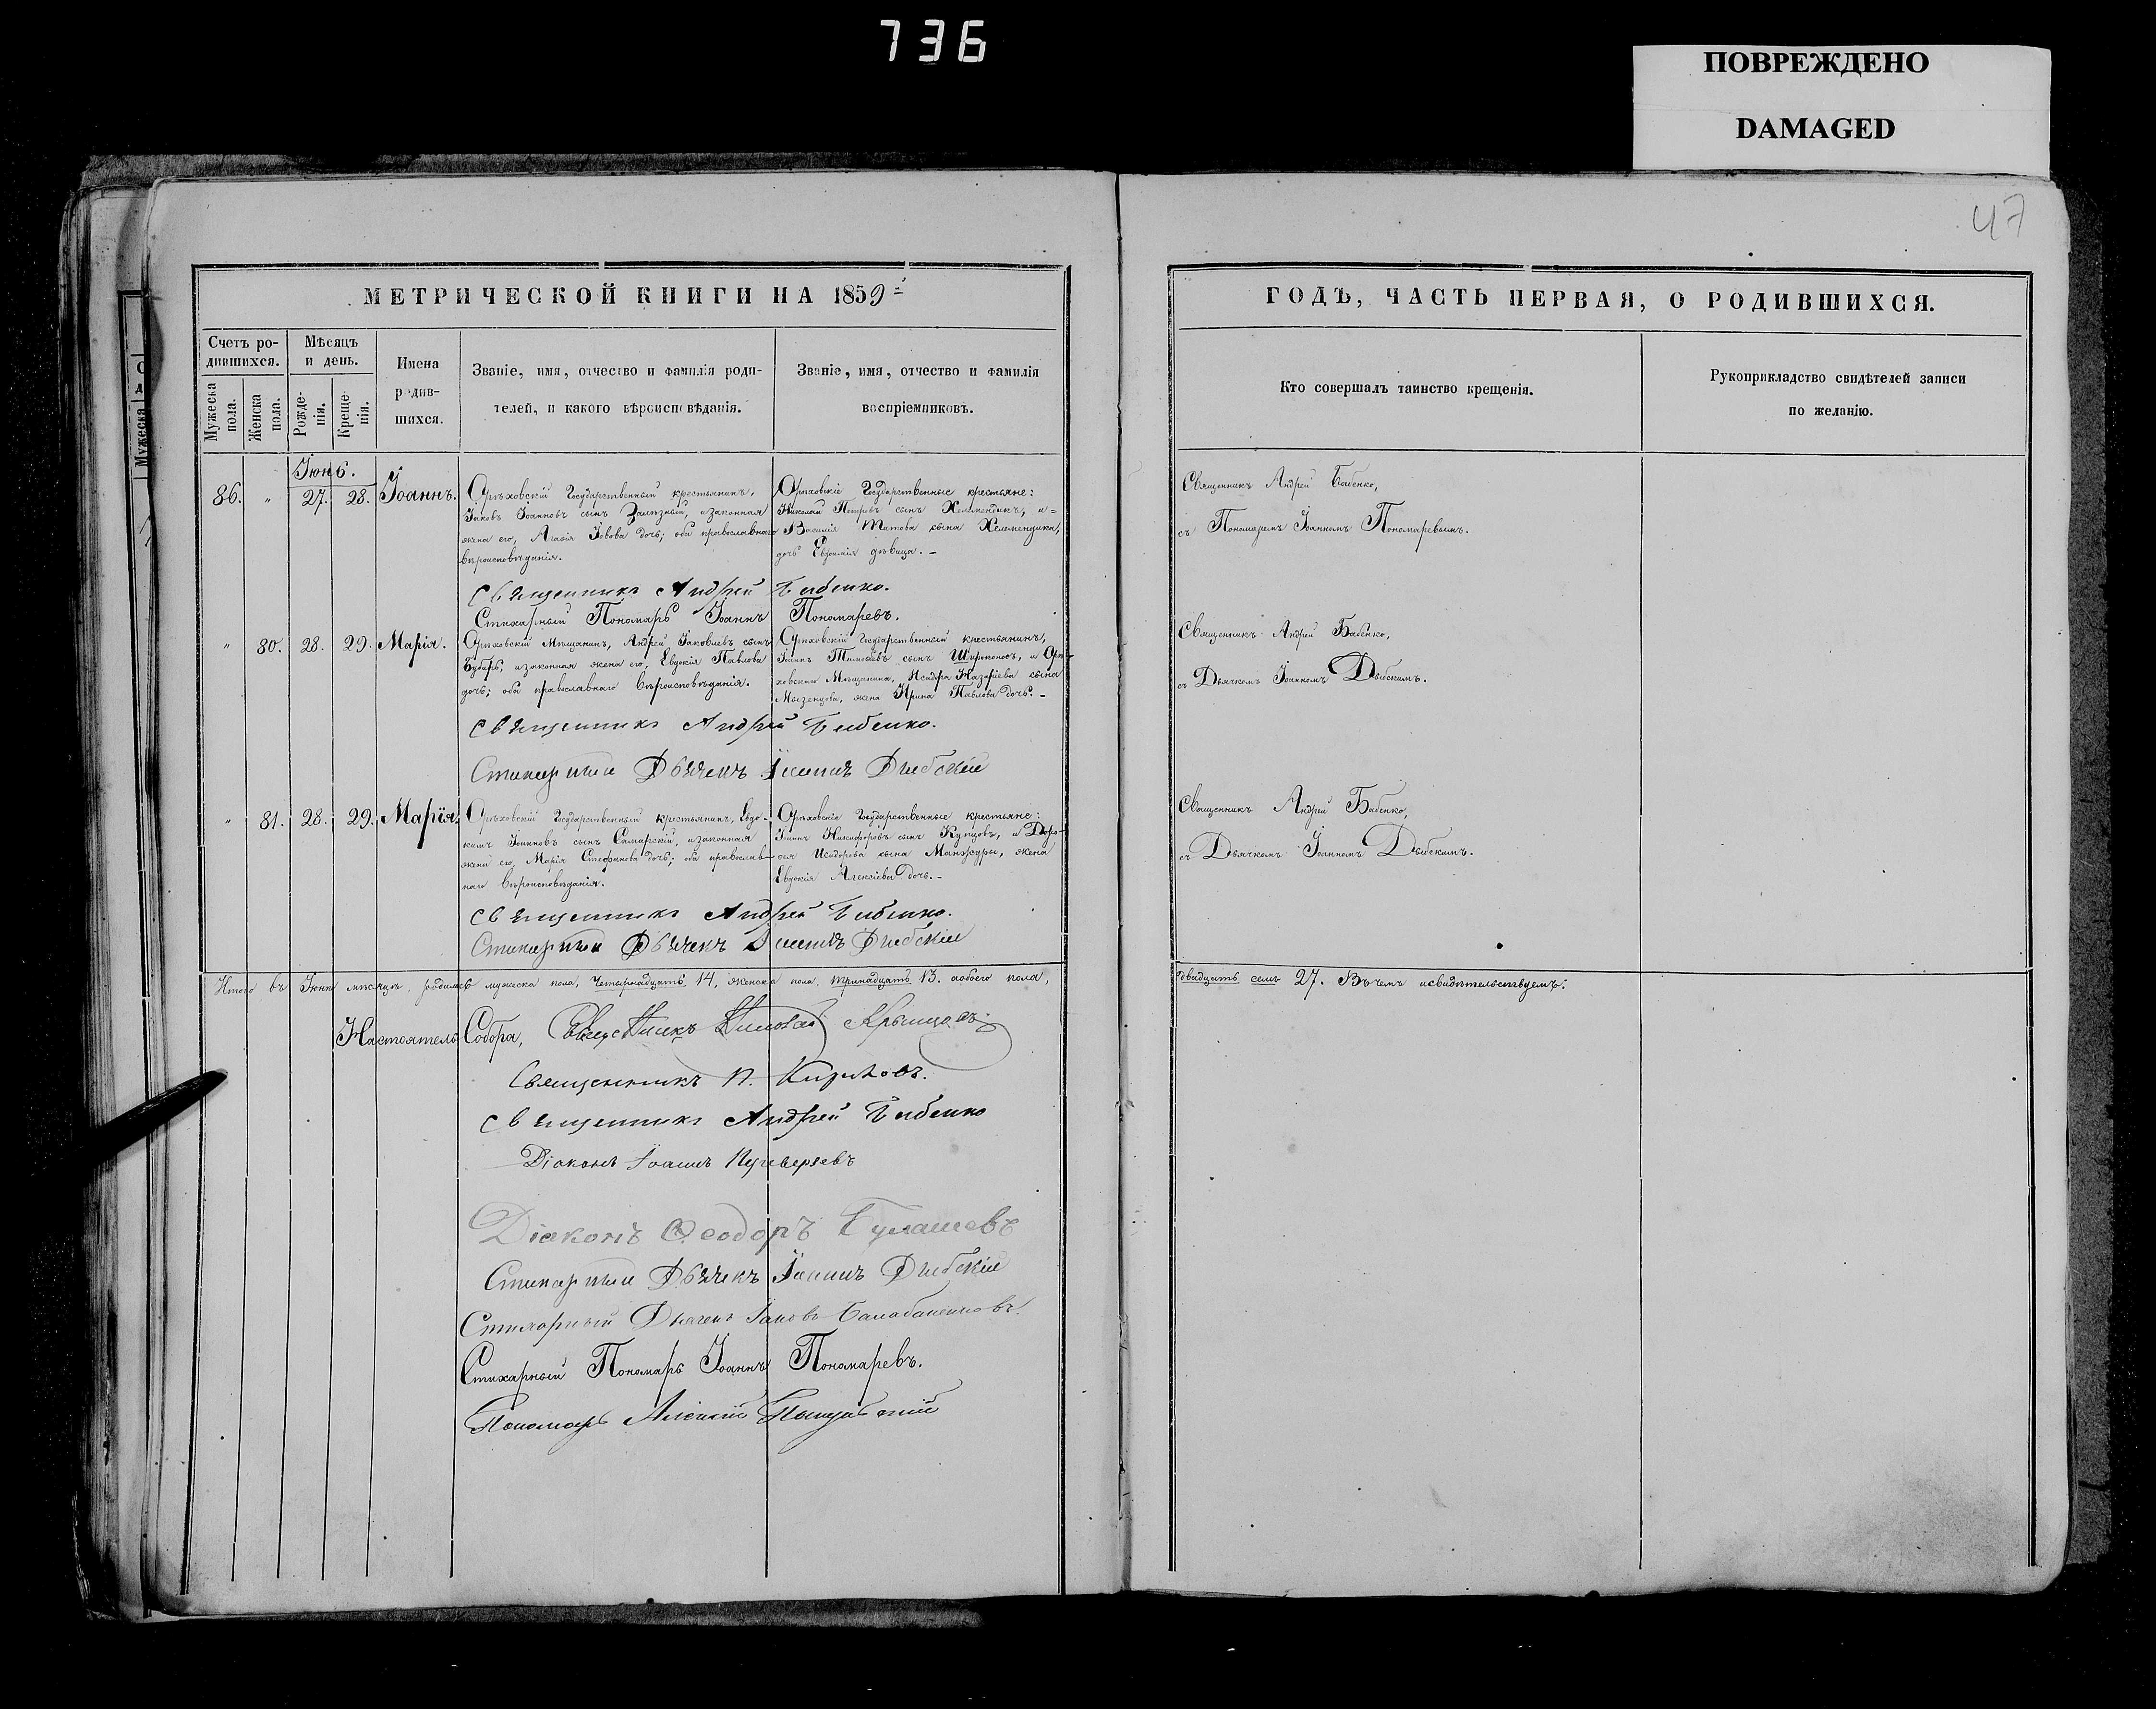 736
ПОВРЕЖДЕНО
DAMAGED
47
МЕТРИЧЕСКОЙ КНИГИ НА 1859й
Счетъ родившихся.
Мужеска пола.
Женска пола.
Мѣсяцъ и день.
Рожденія.
Крещенія.
Имена родившихся.
Званіе, имя, отчество и фамилія родителей, и какого вѣроисповѣданія.
Званіе, имя, отчество и фамилія воспріемниковъ.
ГОДЪ, ЧАСТЬ ПЕРВАЯ, О РОДИВШИХСЯ.
Кто совершалъ таинство крещенія.
Рукоприкладство свидѣтелей записи по желанію.
Мужеска
Іюнь.
86. " 27. 28. Іоаннъ.
Орѣховскій Государственный крестьянинъ,
Іаковъ Іоанновъ сынъ Залѣзный, и законная
жена его, Агафія Іовова дочь; оба православнаго
вѣроисповѣданія.
Орѣховскіе Государственные крестьяне:
Николай Петровъ сынъ Хелемендикъ, и
Василія Титова сына Хелемендика,
дочь Евфимія дѣвица.
Священникъ Андрей Бабенко,
съ Пономаремъ Іоанномъ Пономаревымъ.
Священникъ Андрей Бабенко.
Стихарный Пономарь Іоаннъ Пономаревъ.
" 80. 28. 29. Марія.
Орѣховскій Мѣщанинъ, Андрей Іаковлевъ сынъ
и законная жена его, Евдокія Павлова
дочь; оба православнаго вѣроисповѣданія.
Орѣховскій Государственный крестьянинъ,
Іоаннъ Тимоѳеевъ сынъ Широконосъ, и Орѣ-
ховскаго Мѣщанина, Исидора Назаріева сына
Мызенцова, жена Ирина Павлова дочь.
Священникъ Андрей Бабенко,
съ Дьячкомъ Іоанномъ Дыбскимъ.
Священникъ Андрей Бабенко.
Стихарный Дьячекъ Іоаннъ Дыбскій
" 81. 28. 29. Марія.
Орѣховскій Государственный крестьянинъ, Евдо-
кимъ Іоанновъ сынъ Самарскій, и законная
жена его, Марія Стефанова дочь; оба православ-
наго вѣроисповѣданія.
Орѣховскіе Государственные крестьяне:
Іоаннъ Никифоровъ сынъ Купцовъ, и Доро-
ѳея Исидорова сына Манжуры, жена
Евдокія Алексіева дочь.
Священникъ Андрей Бабенко,
съ Дьячкомъ Іоанномъ Дыбскимъ.
Священникъ Андрей Бабенко.
Стихарный Дьячекъ Іоаннъ Дыбскій
Итого въ Іюнѣ мѣсяцѣ, родилось мужеска пола, четырнадцать 14, женска пола, тринадцать 13. а обоего пола,
двадцать семь 27. Въ чемъ и свидѣтельствуемъ:
Настоятель Собора, Священникъ
Священникъ
Священникъ Андрей Бабенко
Діаконъ Іоаннъ
Діаконъ Ѳеодоръ Булашевъ
Стихарный Дьячекъ Іоаннъ Дыбскій
Стихарный Дьячекъ Іаковъ
Стихарный Пономарь Іоаннъ Пономаревъ.
Пономарь Алексій